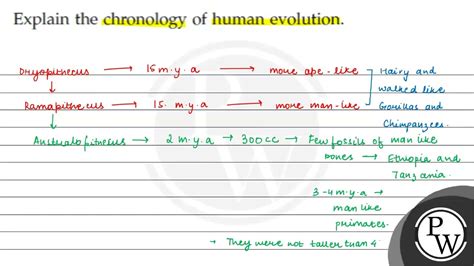 Explain the chronology of human evolution.
Dryopithecus → 15 m.y.a → more ape-like Hairy and
walked like
Ramapithecus → 15. m.y.a → more man-like Gorillas and
Chimpanzees.
Australopithecus → 2 m.y.a → 300cc → Few fossils of man like
bones → Ethiopia and
Tanzania.
3-4 m.y.a →
man like
primates.
→ They were not taller than 4
PW